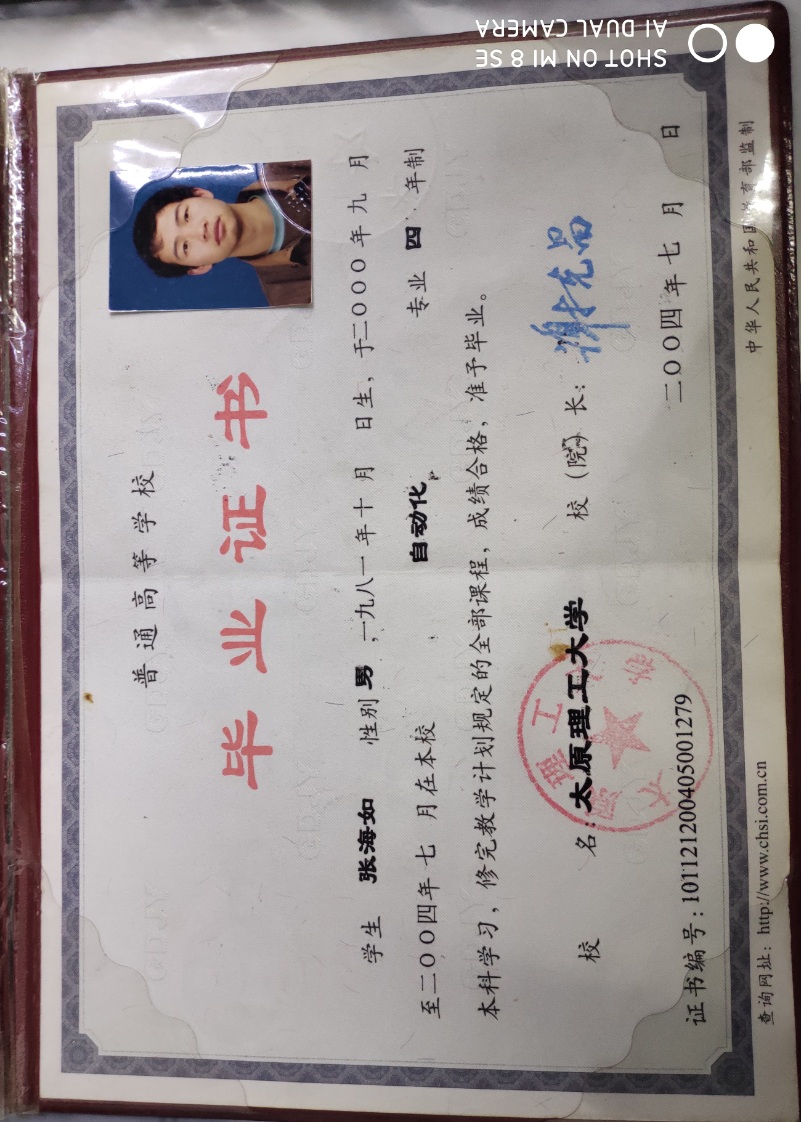 普通高等学校
毕业证书
学生 张海如 性别 男,一九八一年十月 日生,于二〇〇〇年九月
至二〇〇四年七 月在本校 自动化 专业 四 年制
本科学习,修完教学计划规定的全部课程,成绩合格,准予毕业。
校 名:太原理工大学 校(院)长:谢克昌
证书编号:101121200405001279 二〇〇四年七月 日
查询网址:http://www.chsi.com.cn 中华人民共和国教育部监制
SHOT ON MI 8 SE
AI DUAL CAMERA